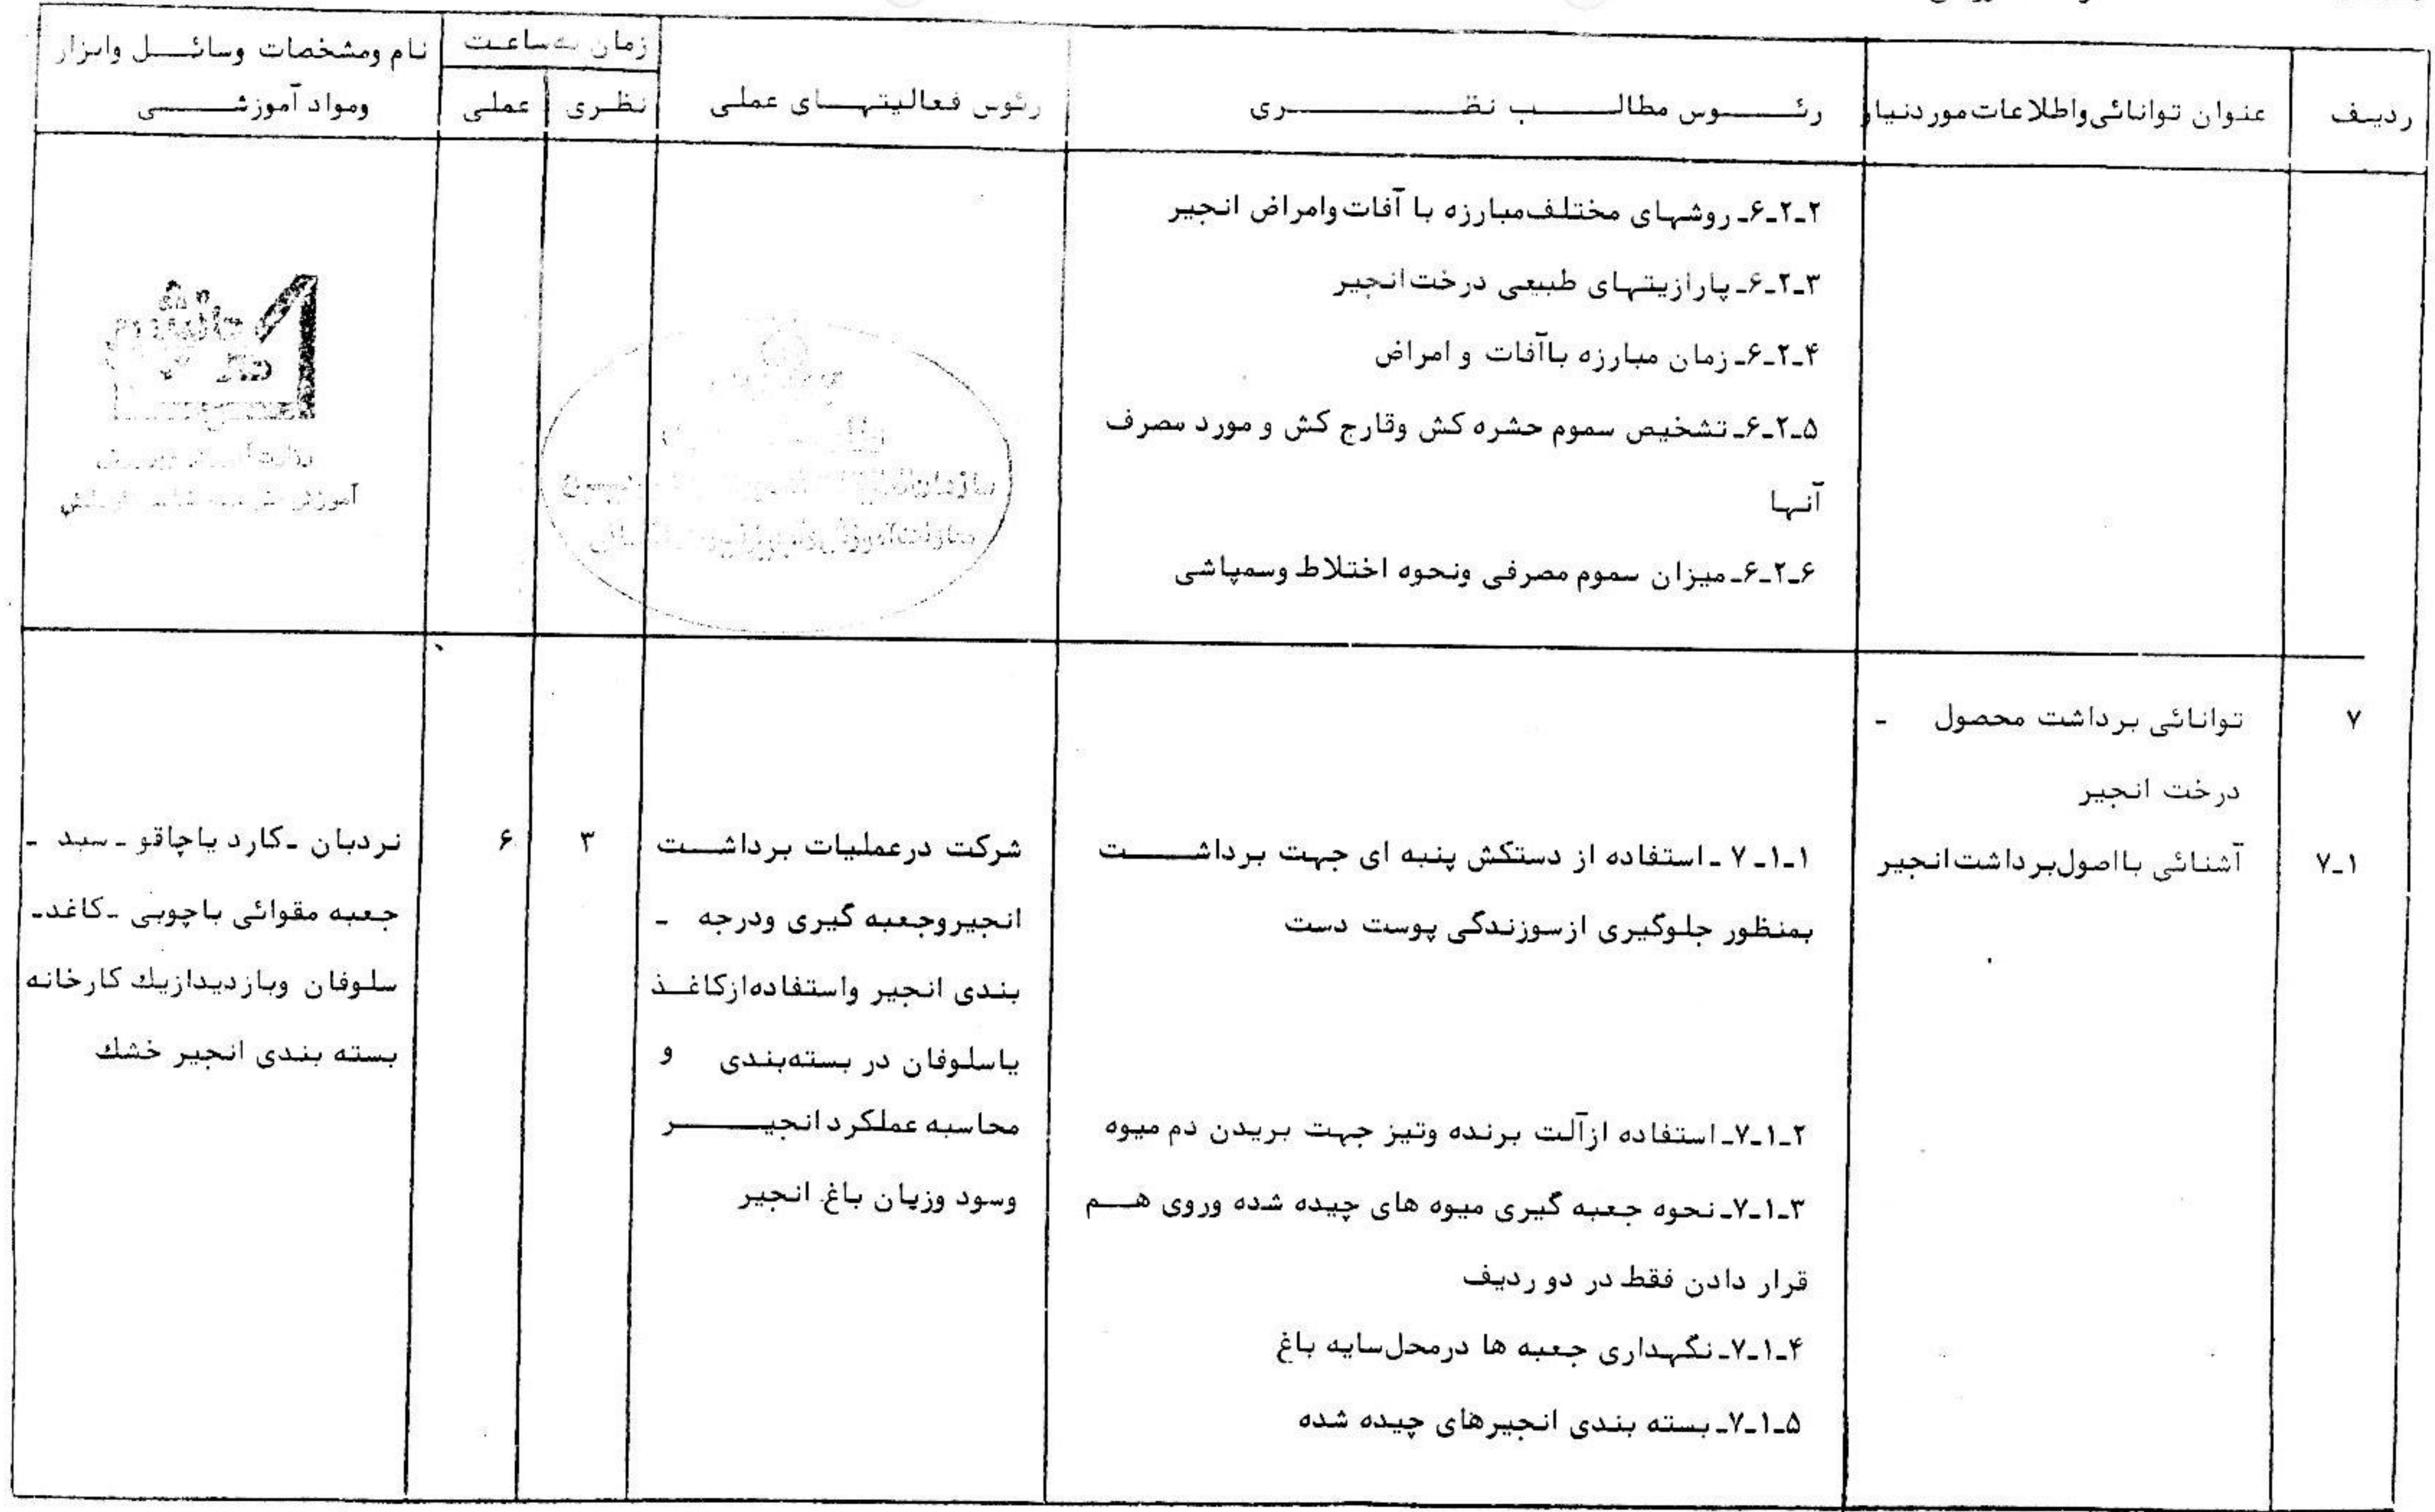 ردیف
عنوان توانائی واطلاعات موردنیاز
رئوس مطالب نظری
رئوس فعالیتهای عملی
زمان به ساعت
نظری
عملی
نام ومشخصات وسائل وابزار
ومواد آموزشی
۶-۲-۲- روشهای مختلف مبارزه با آفات وامراض انجیر
۶-۲-۳- پارازیتهای طبیعی درخت انجیر
۶-۲-۴- زمان مبارزه باآفات و امراض
۶-۲-۵- تشخیص سموم حشره کش وقارچ کش و مورد مصرف
آنها
۶-۲-۶- میزان سموم مصرفی ونحوه اختلاط وسمپاشی
۷
توانائی برداشت محصول -
درخت انجیر
۷-۱
آشنائی بااصول برداشت انجیر
۷-۱-۱- استفاده از دستکش پنبه ای جهت برداشت
بمنظور جلوگیری ازسوزندگی پوست دست
۷-۱-۲- استفاده ازآلت برنده وتیز جهت بریدن دم میوه
۷-۱-۳- نحوه جعبه گیری میوه های چیده شده وروی هم
قرار دادن فقط در دو ردیف
۷-۱-۴- نگهداری جعبه ها درمحل سایه باغ
۷-۱-۵- بسته بندی انجیرهای چیده شده
شرکت درعملیات برداشت
انجیروجعبه گیری ودرجه -
بندی انجیر واستفاده ازکاغذ
یاسلوفان در بسته بندی و
محاسبه عملکرد انجیر
وسود وزیان باغ انجیر
۳
۶
نردبان - کارد یاچاقو - سبد -
جعبه مقوائی باچوبی - کاغد -
سلوفان وبازدیدازیك کارخانه
بسته بندی انجیر خشك